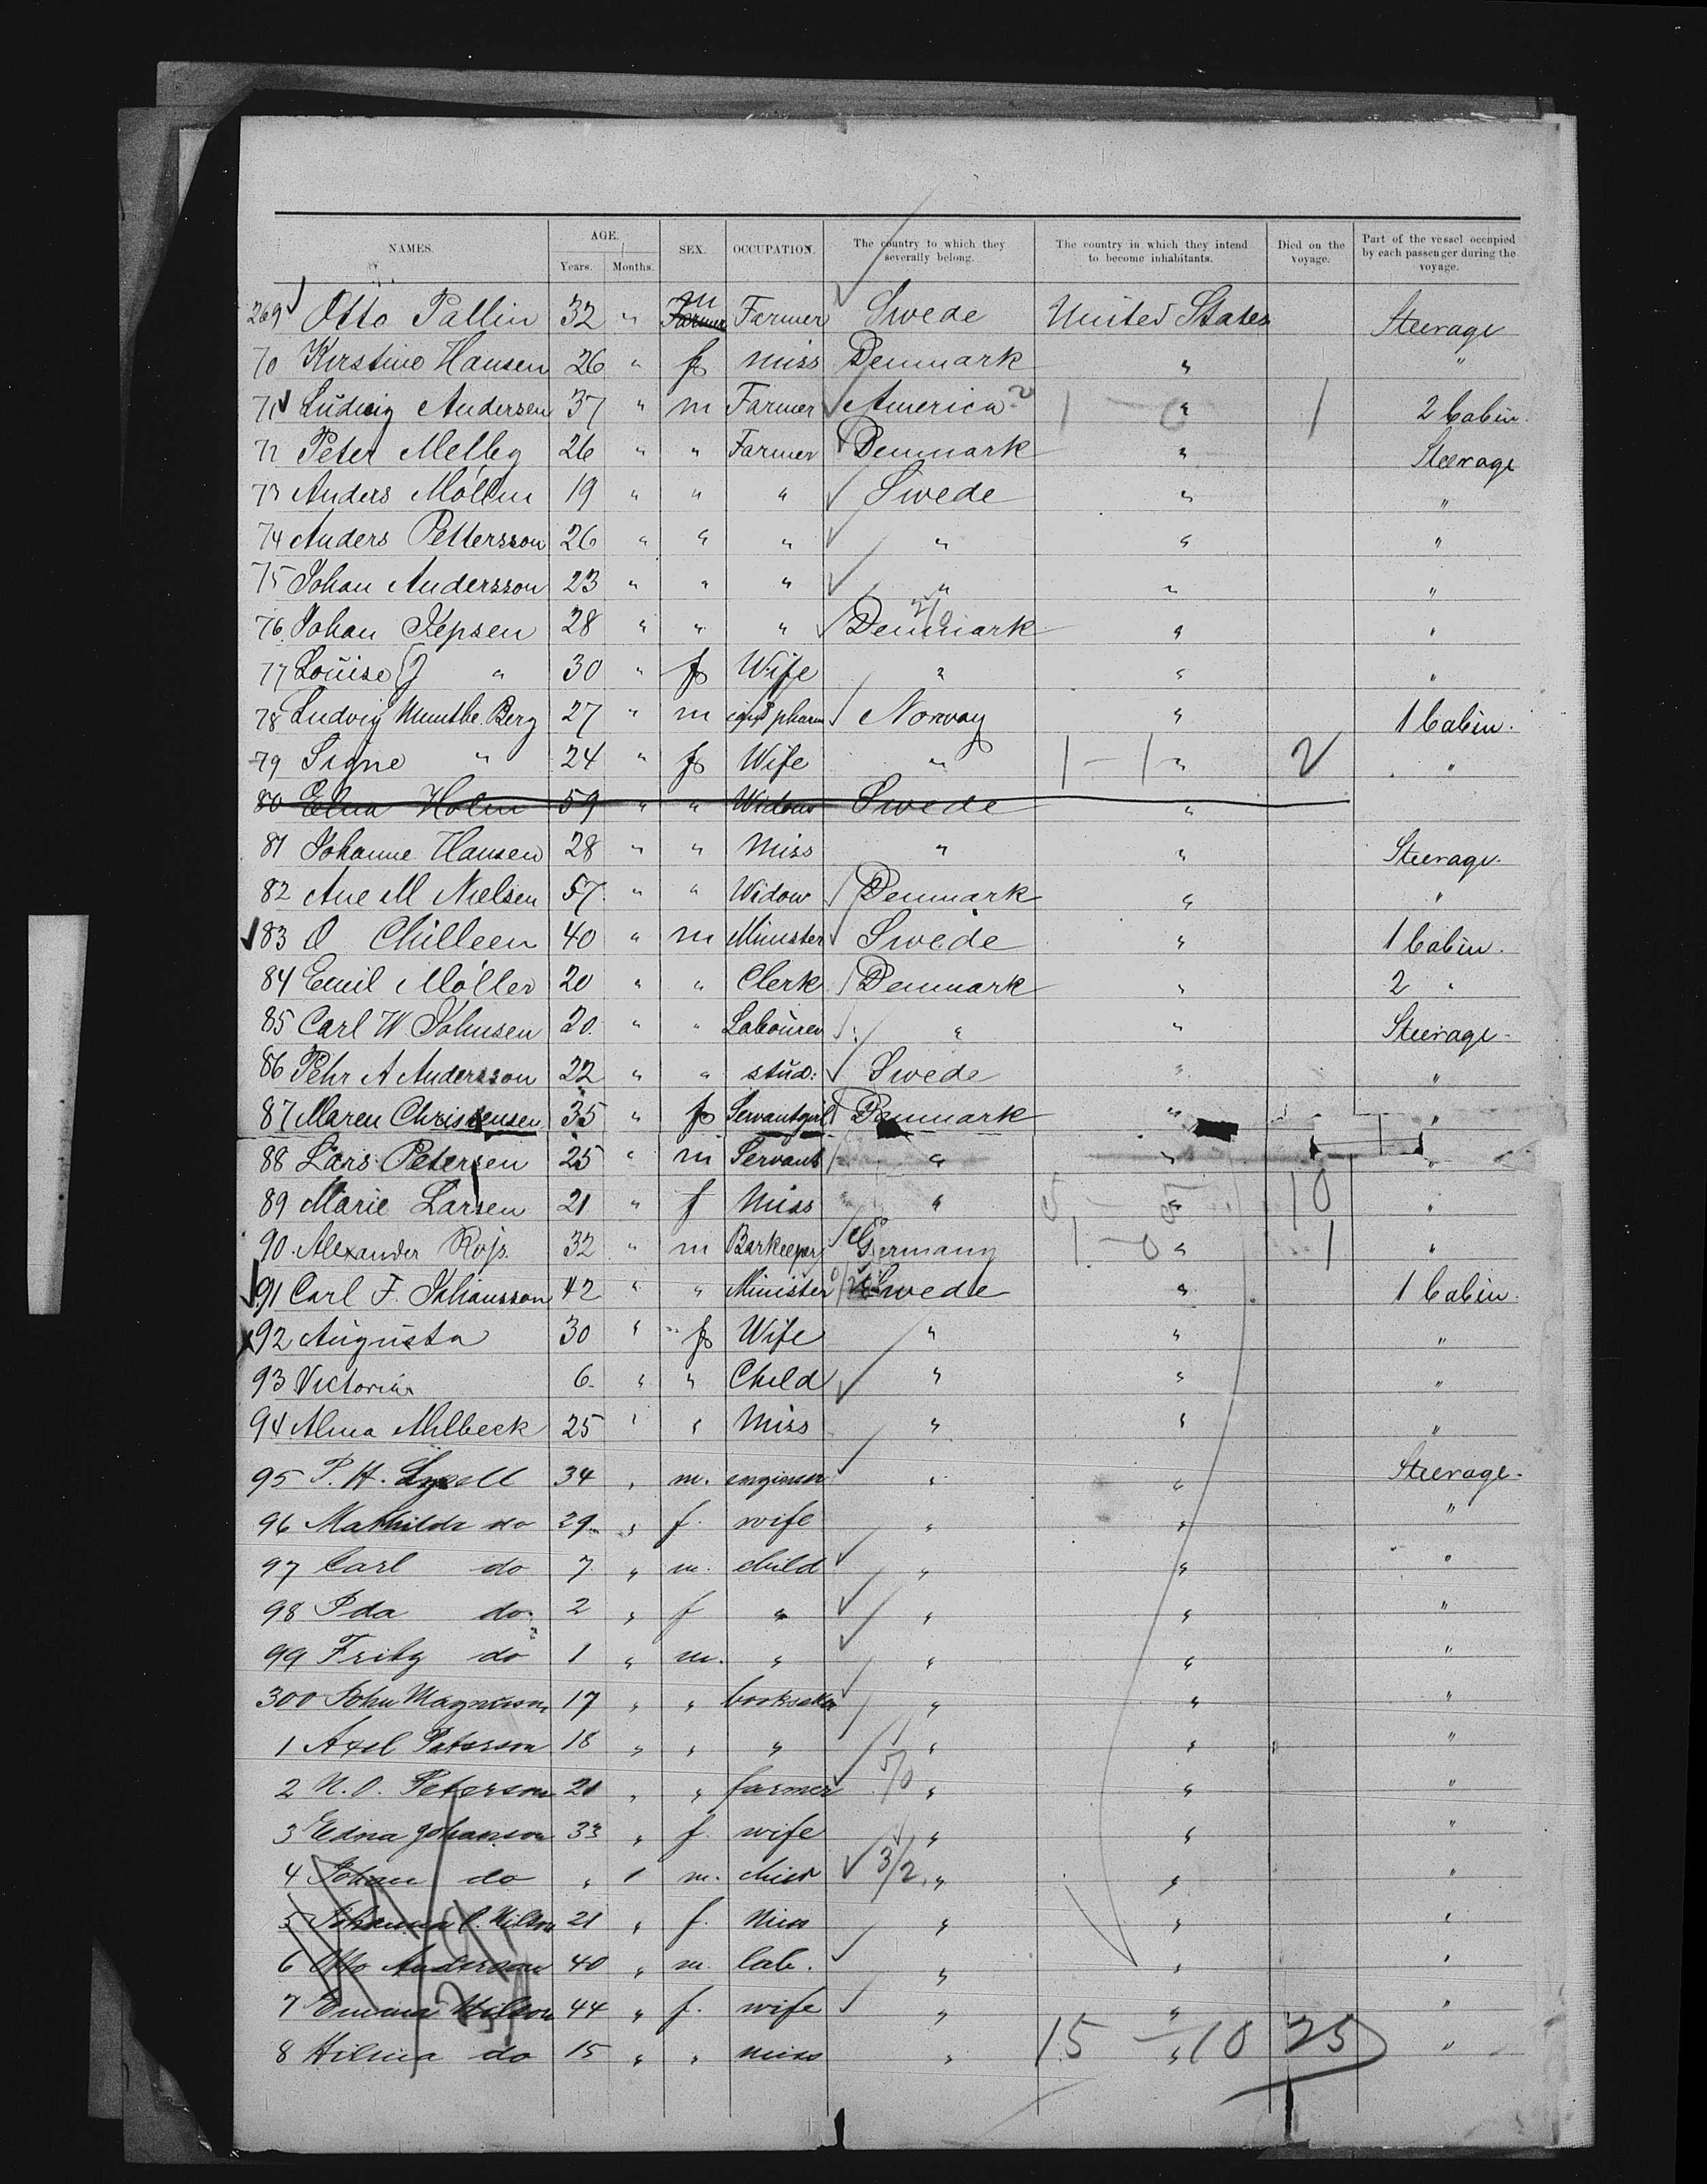 NAMES. AGE. Years. Months. SEX. OCCUPATION. The country to which they severally belong. The country in which they intend to become inhabitants. Died on the voyage. Part of the vessel occupied by each passenger during the voyage.
269 Otto Pallin 32 " m Farmer Farmer Swede United States Steerage
70 Kirstine Hansen 26 " f Miss Denmark " "
71 Ludvig Andersen 37 " m Farmer America " 2 Cabin.
72 Peter Melby 26 " " Farmer Denmark " Steerage
73 Anders Möllin 19 " " " Swede " "
74 Anders Pettersson 26 " " " " " "
75 Johan Andersson 23 " " " " " "
76 Johan Jepsen 28 " " " Denmark " "
77 Louise J " 30 " f Wife " " "
78 Ludvig Munthe Berg 27 " m pharm Norway " 1 Cabin.
79 Signe " 24 " f Wife " 1 - 1 " 2 "
80 Elna Holm 59 " " Widow Swede "
81 Johanne Hansen 28 " " Miss " " Steerage.
82 Ane M Nielsen 57 " " Widow Denmark " "
83 O Chilleen 40 " m Minister Swede " 1 Cabin.
84 Emil Möller 20 " " Clerk Denmark " 2 "
85 Carl W. Johnsen 20. " " Labourer " " Steerage
86 Pehr A Andersson 22 " " stud: Swede " "
87 Maren Christensen 35 " f Servantgirl Denmark " "
88 Lars Petersen 25 " m Servant " " "
89 Marie Larsen 21 " f Miss " 5 - 5 " 10 "
90. Alexander 32 " m Barkeeper Germany 1 - 0 " 1 "
91 Carl F. Johansson 42 " " Minister Swede " 1 Cabin.
92 Augusta 30 " f Wife " " "
93 Victoria 6. " " Child " " "
94 Alma Ahlbeck 25 " " Miss " " "
95 P. H. 34 " m. engineer " " Steerage.
96 Mathilda do 29 " f. wife " " "
97 Carl do 7 " m. child " " "
98 Ida do 2 " f " " " "
99 Fritz do 1 " m. " " " "
300 John Magnuson 17 " " bookseller " " "
1 Axel Peterson 18 " " " " " "
2 N. O. Peterson 21 " " farmer 5/0 " " "
3 Edna Johanson 33 " f. wife " " "
4 Johan do " 1 m. child 3/2 " " "
5 Johanna C. Nilson 21 " f. Miss " " "
6 Otto Anderson 40 " m. lab. " " "
7 Emma Nilson 44 " f. wife " " "
8 Hilma do 15 " " miss " 15 - 10 " 25 "